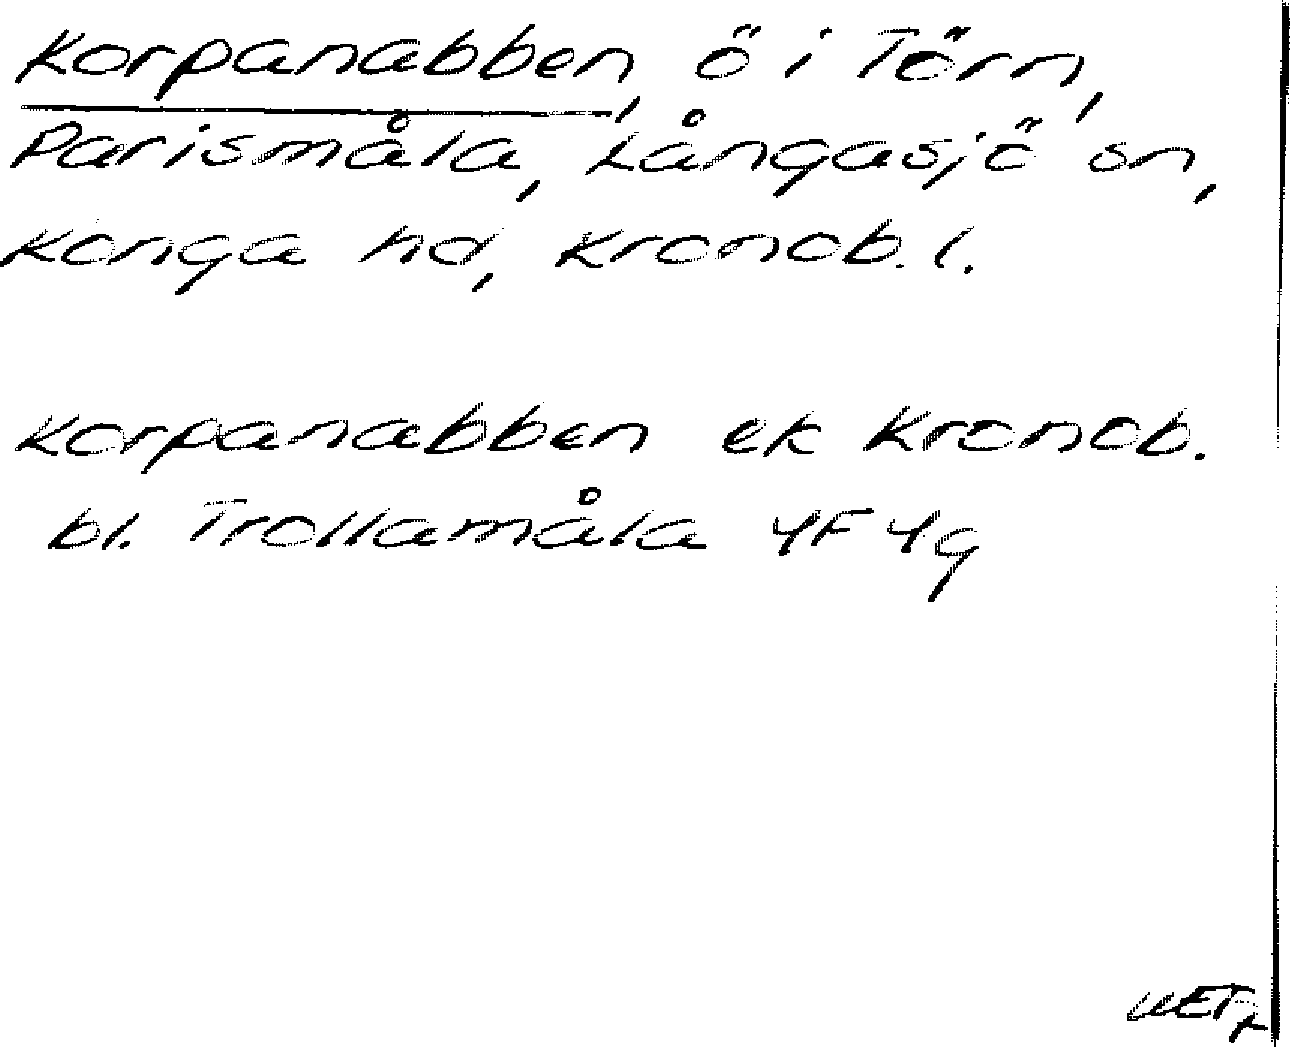 Korpanabben, ö i Törn,
Parismåla, Långasjö sn,
Konga hd, Kronob. l.
Korpanabben ek Kronob.
bl. Trollamåla 4F 4g